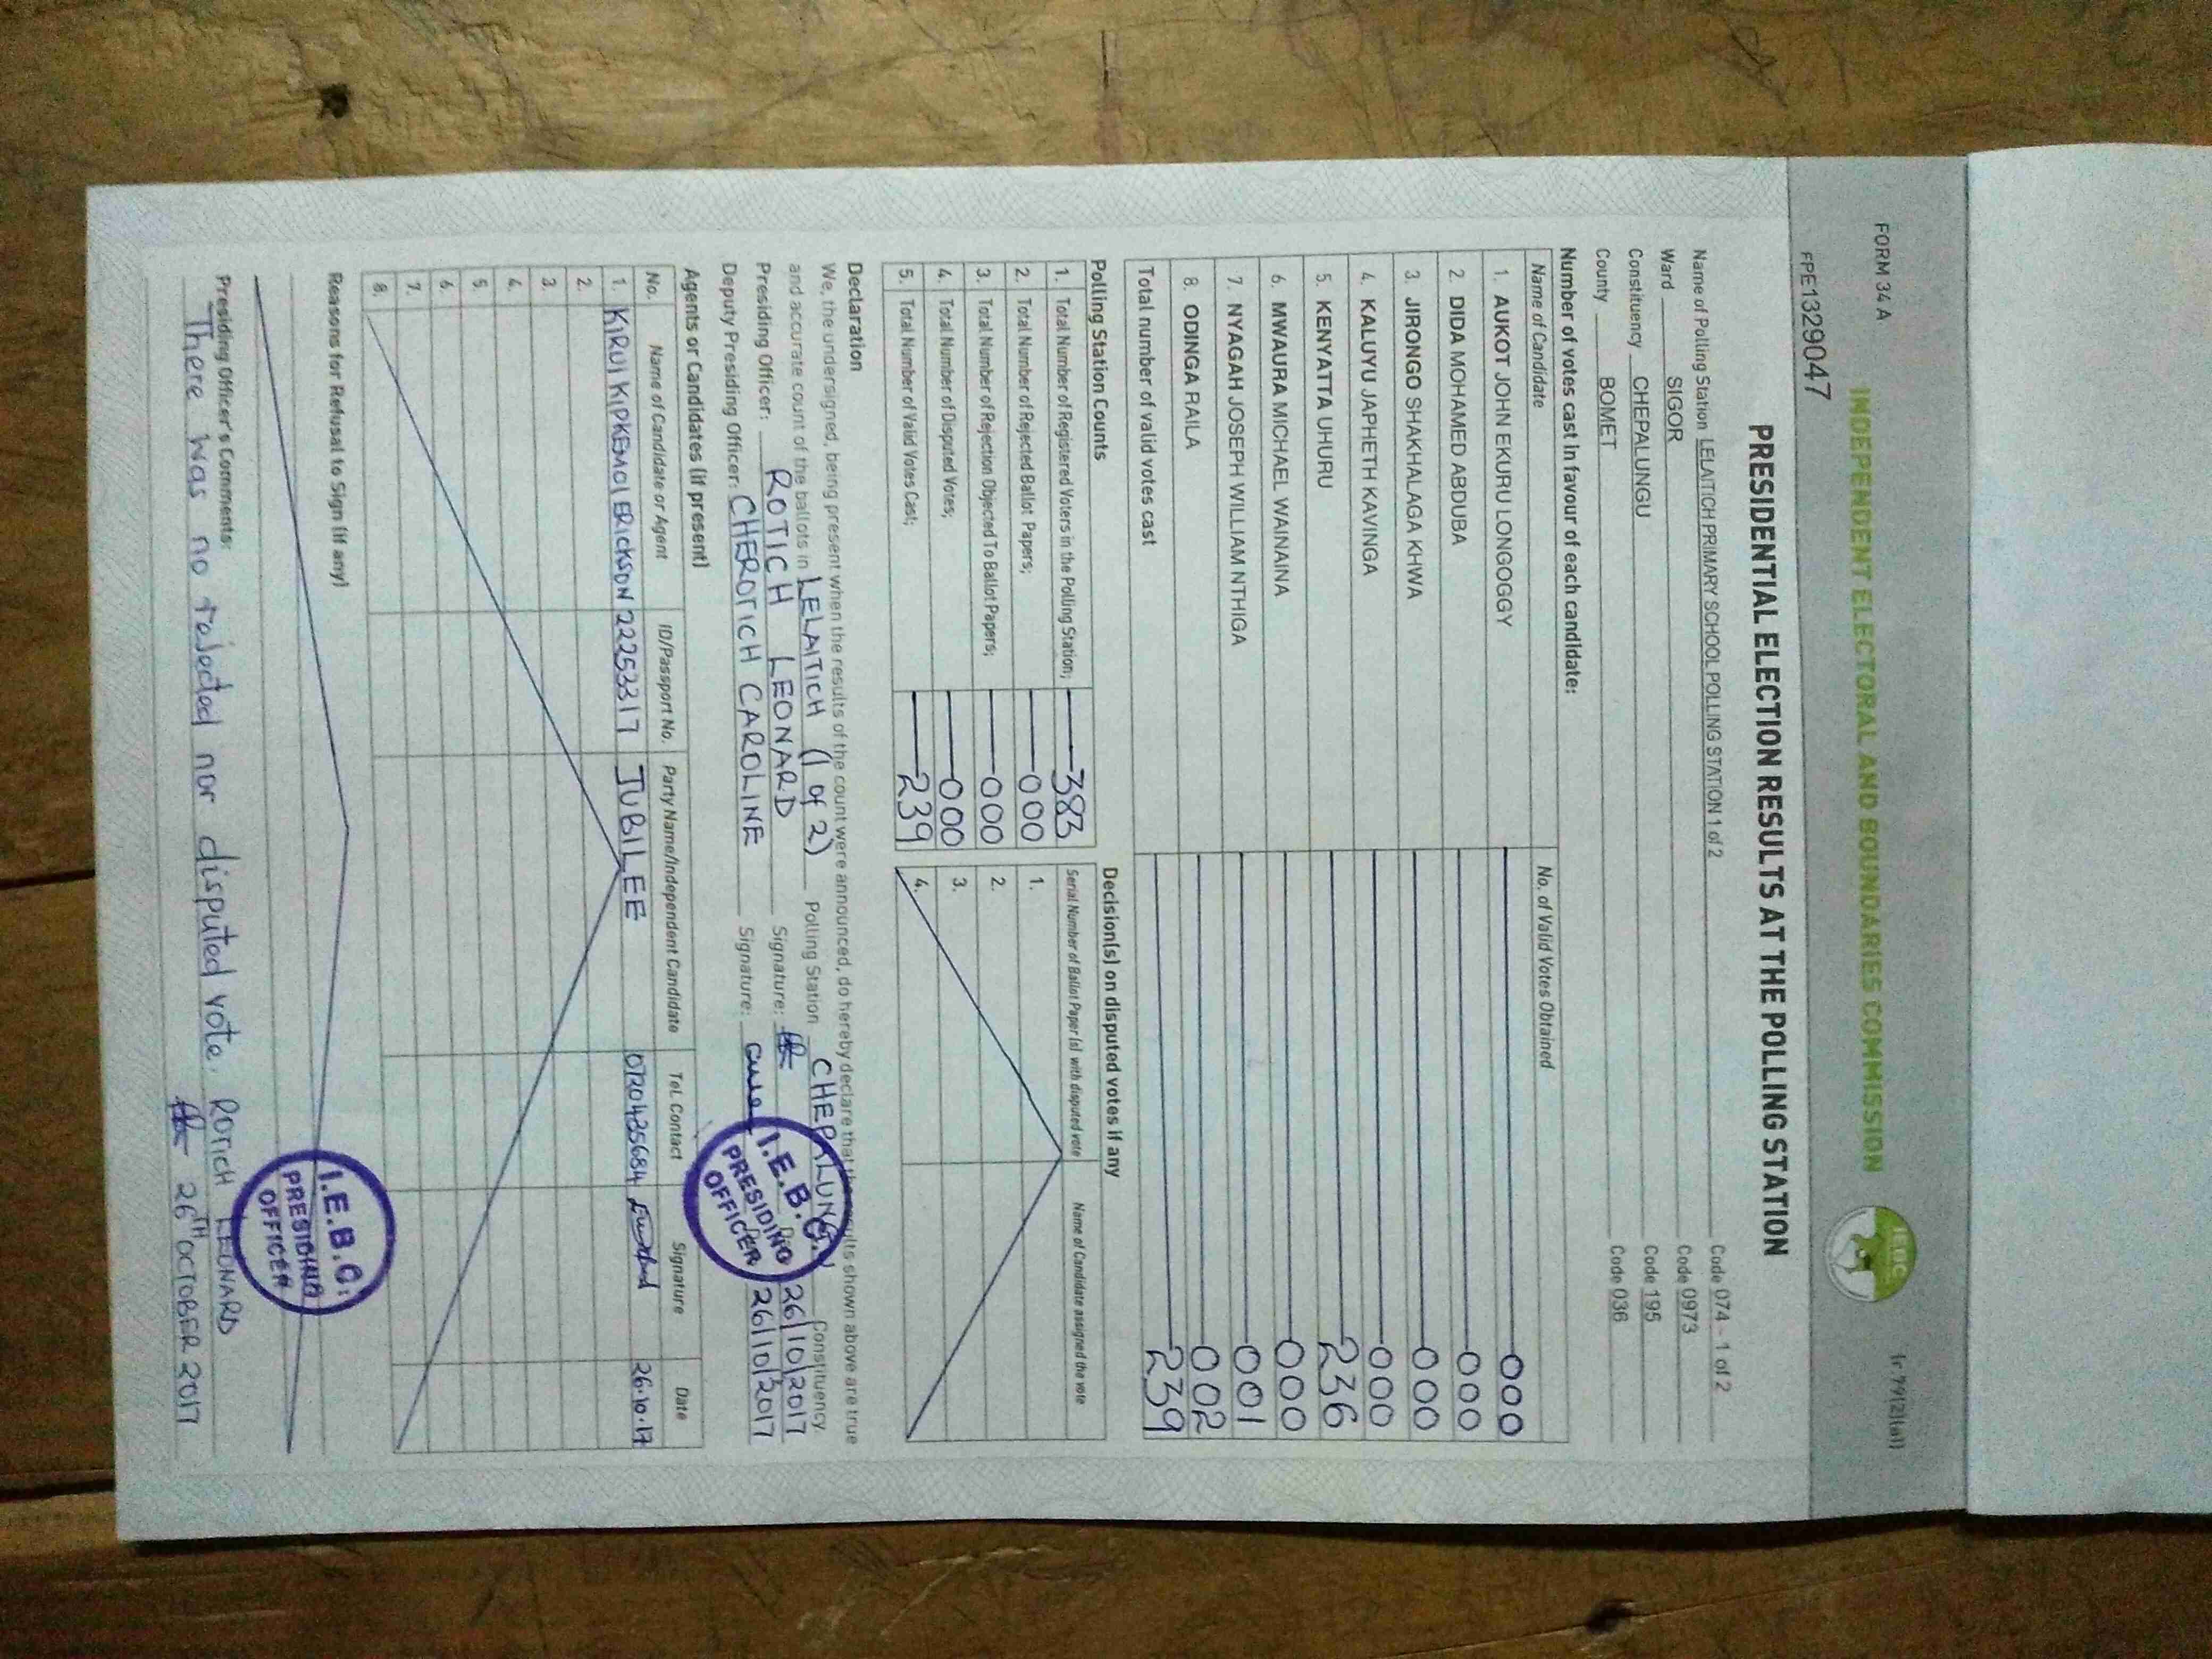 FORM 34 A
Ir.79(2)(a)
INDEPENDENT ELECTORAL AND BOUNDARIES COMMISSION
IEBC
FPE1329047
PRESIDENTIAL ELECTION RESULTS AT THE POLLING STATION
Name of Polling Station LELAITICH PRIMARY SCHOOL POLLING STATION 1 of 2 Code 074 - 1 of 2
Ward SIGOR Code 0973
Constituency CHEPALUNGU Code 195
County BOMET Code 036
Number of votes cast in favour of each candidate:
Name of Candidate No. of Valid Votes Obtained
1. AUKOT JOHN EKURU LONGOGGY 000
2. DIDA MOHAMED ABDUBA 000
3. JIRONGO SHAKHALAGA KHWA 000
4. KALUYU JAPHETH KAVINGA 000
5. KENYATTA UHURU 236
6. MWAURA MICHAEL WAINAINA 000
7. NYAGAH JOSEPH WILLIAM NTHIGA 001
8. ODINGA RAILA 002
Total number of valid votes cast 239
Polling Station Counts
1. Total Number of Registered Voters in the Polling Station; 383
2. Total Number of Rejected Ballot Papers; 000
3. Total Number of Rejection Objected To Ballot Papers; 000
4. Total Number of Disputed Votes; 000
5. Total Number of Valid Votes Cast; 239
Decision(s) on disputed votes if any
Serial Number of Ballot Paper (s) with disputed vote Name of Candidate assigned the vote
1.
2.
3.
4.
Declaration
We, the undersigned, being present when the results of the count were announced, do hereby declare that the results shown above are true
and accurate count of the ballots in LELAITICH (1 of 2) Polling Station CHEPALUNGU Constituency
Presiding Officer: ROTICH LEONARD Signature: 26/10/2017
Deputy Presiding Officer: CHEROTICH CAROLINE Signature: 26/10/2017
I.E.B.C.
PRESIDING
OFFICER
Agents or Candidates (if present)
No. Name of Candidate or Agent ID/Passport No. Party Name/Independent Candidate Tel. Contact Signature Date
1. KIRUI KIPKEMOI ERICKSON 22253317 JUBILEE 0720425684 26.10.17
2.
3.
4.
5.
6.
7.
8.
Reasons for Refusal to Sign (if any)
I.E.B.C.
PRESIDING
OFFICER
Presiding Officer's Comments:
There was no rejected nor disputed vote. ROTICH LEONARD
26TH OCTOBER 2017